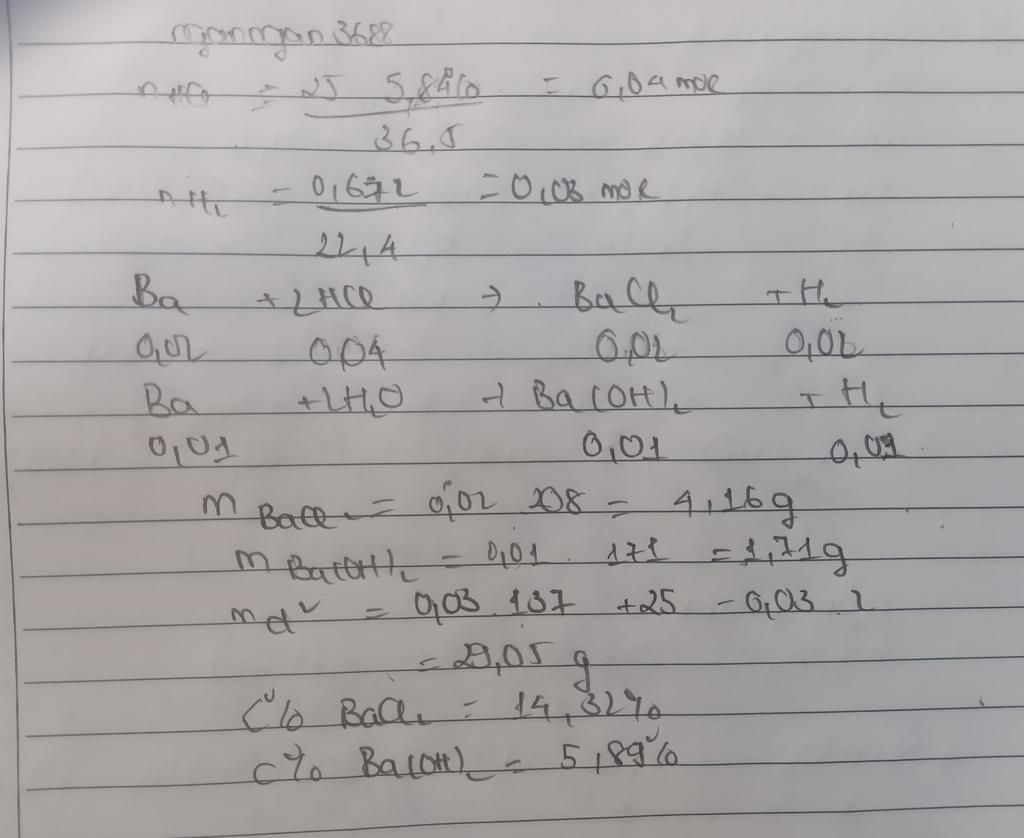 ngongan 3688
nHCl = 25 5,84% / 36,5 = 0,04 mol
nH2 = 0,672 / 22,4 = 0,03 mol
Ba + 2HCl → BaCl2 + H2
0,02 0,04 0,02 0,02
Ba + 2H2O → Ba(OH)2 + H2
0,01 0,01 0,01
m BaCl2 = 0,02 208 = 4,16g
m Ba(OH)2 = 0,01 . 171 = 1,71g
m d2 = 0,03 137 + 25 - 0,03 . 2
= 29,05 g
C% BaCl2 = 14,32%
C% Ba(OH)2 = 5,89%